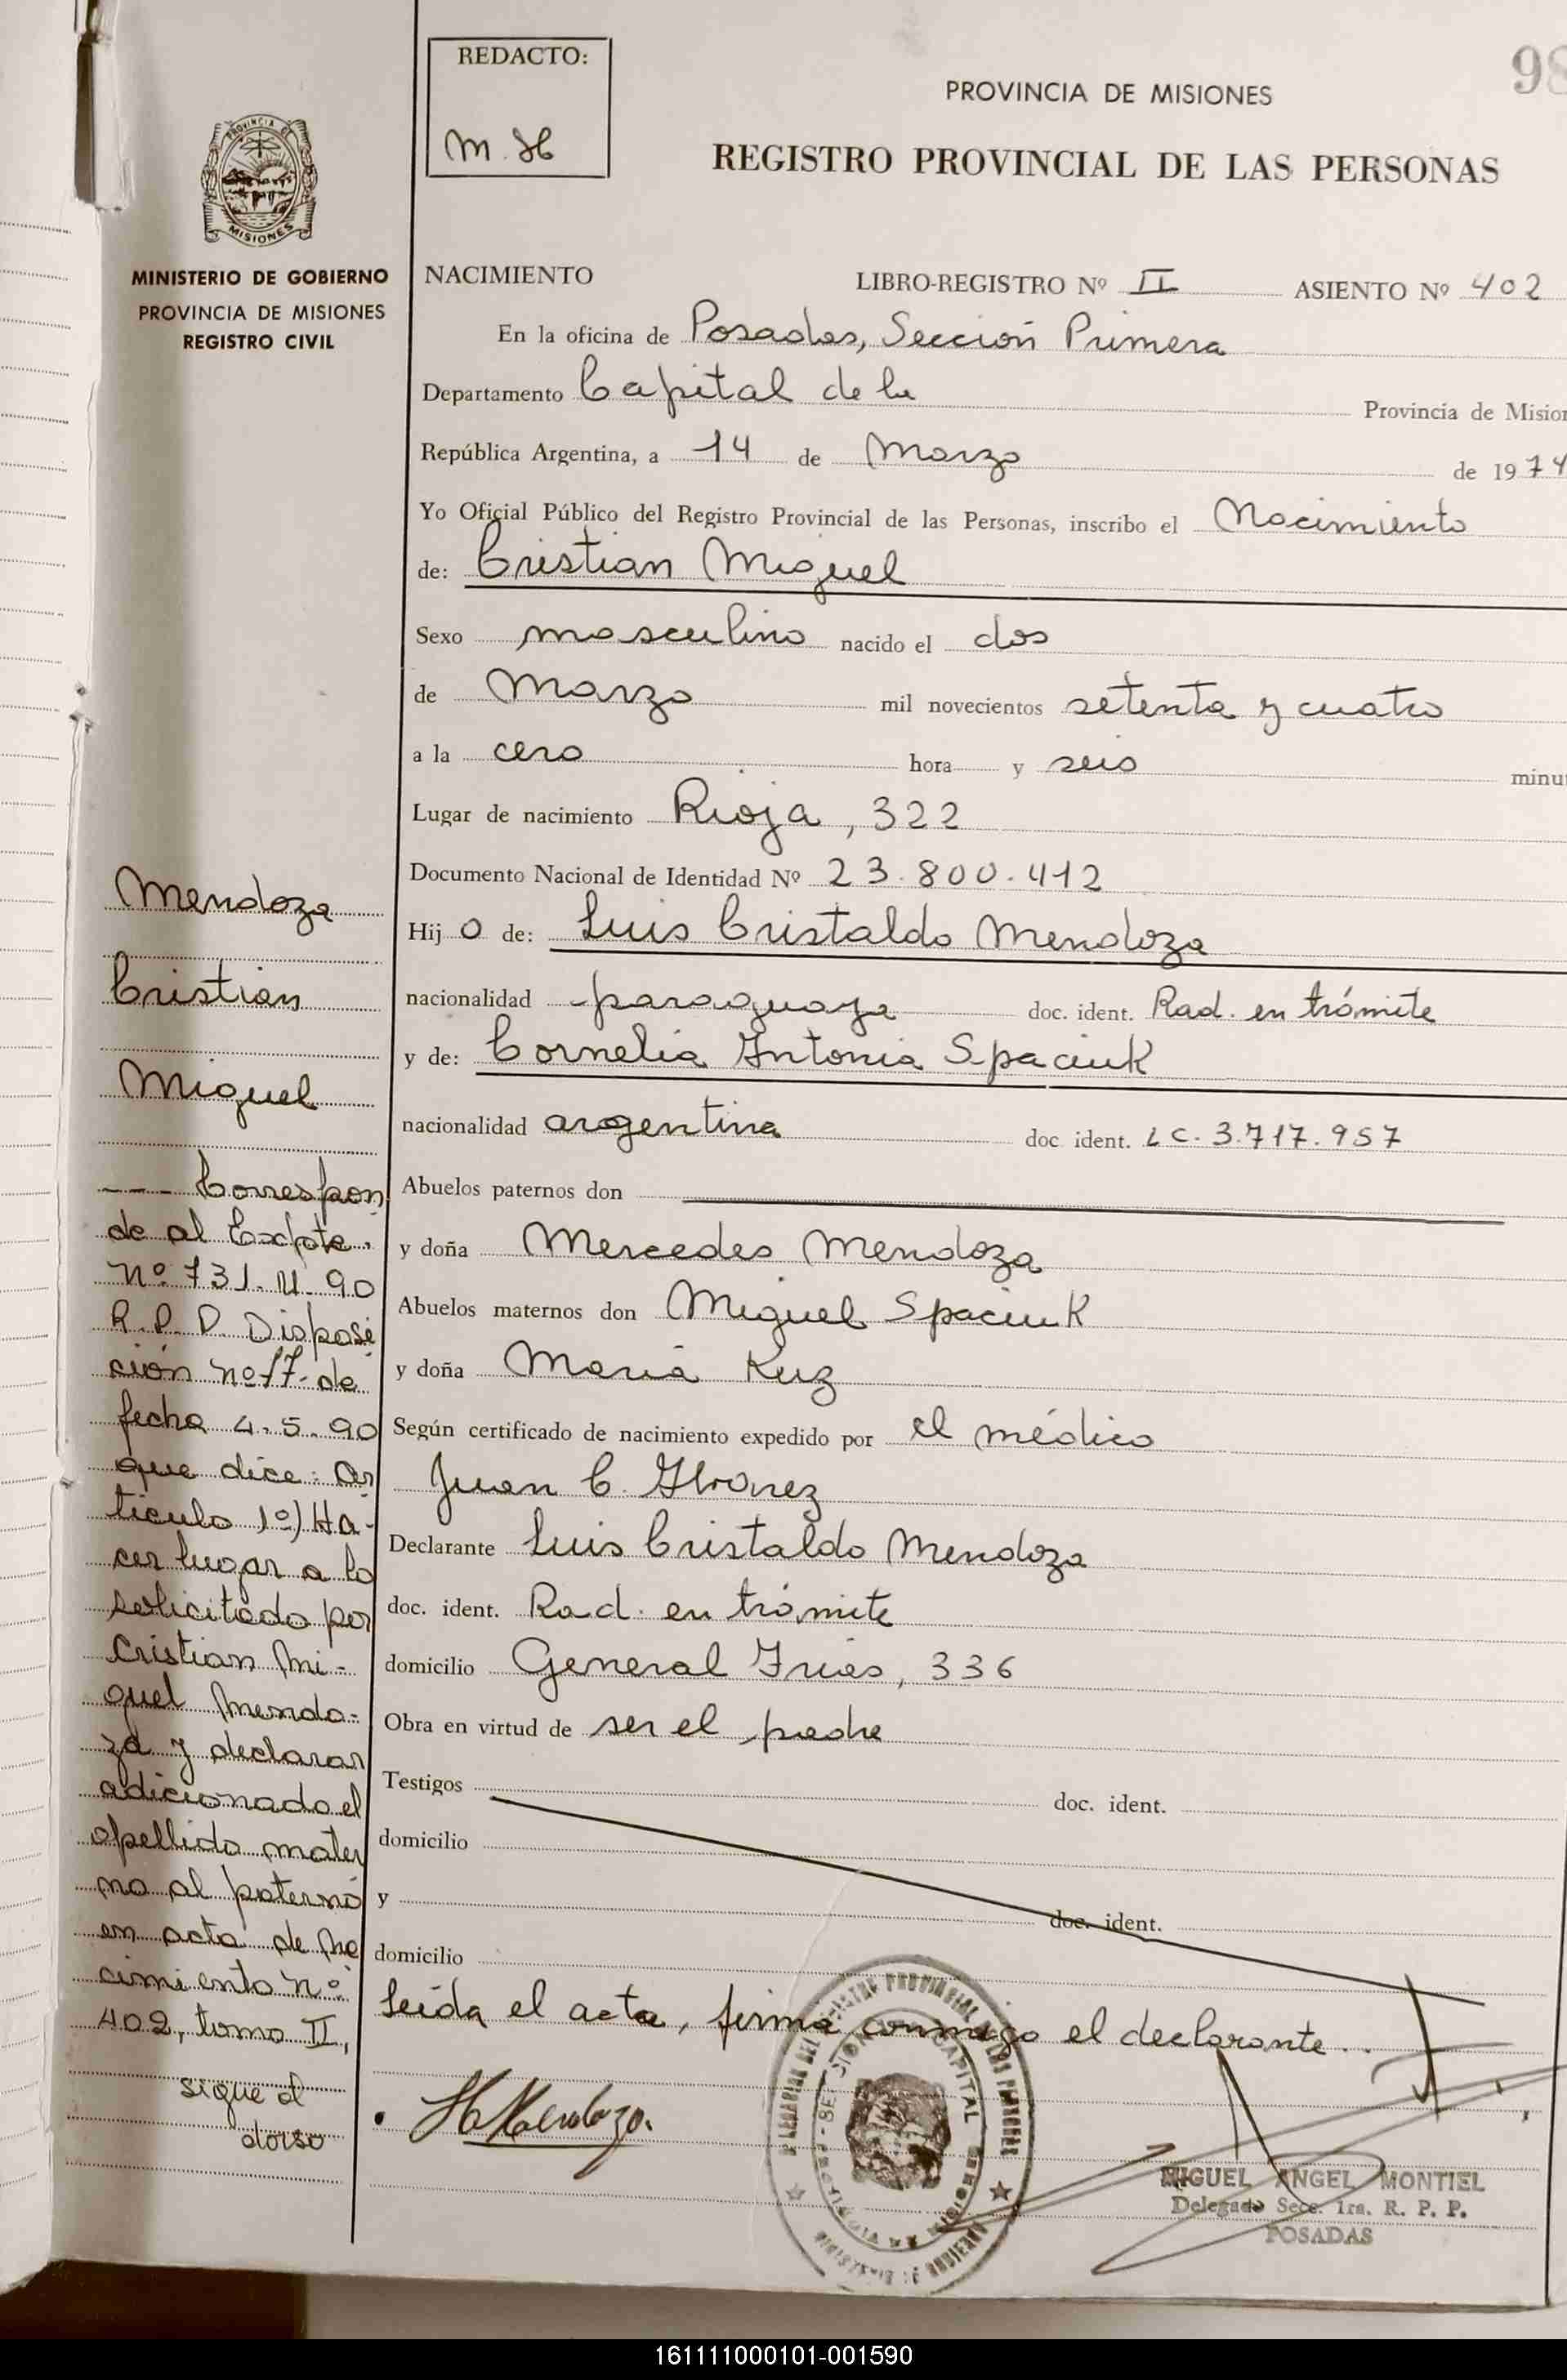 REDACTO:
M. H
98
PROVINCIA DE MISIONES
REGISTRO PROVINCIAL DE LAS PERSONAS
PROVINCIA DE
MISIONES
MINISTERIO DE GOBIERNO
PROVINCIA DE MISIONES
REGISTRO CIVIL
NACIMIENTO LIBRO-REGISTRO Nº II ASIENTO Nº 402
En la oficina de Posadas, Sección Primera
Departamento Capital de la Provincia de Mision
República Argentina, a 14 de Marzo de 1974
Yo Oficial Público del Registro Provincial de las Personas, inscribo el Nacimiento
de: Cristian Miguel
Sexo masculino nacido el dos
de Marzo mil novecientos setenta y cuatro
a la cero hora y seis minu
Lugar de nacimiento Rioja, 322
Documento Nacional de Identidad Nº 23.800.412
Hij o de: Luis Cristaldo Mendoza
nacionalidad paraguaya doc. ident. Rad. en trámite
y de: Cornelia Antonia Spaciuk
nacionalidad argentina doc ident. LC. 3.717.957
Abuelos paternos don
y doña Mercedes Mendoza
Abuelos maternos don Miguel Spaciuk
y doña María Kuz
Según certificado de nacimiento expedido por el médico
Juan C.
Declarante Luis Cristaldo Mendoza
doc. ident. Rad. en trámite
domicilio General Frias, 336
Obra en virtud de ser el padre
Testigos doc. ident.
domicilio
y doc. ident.
domicilio
Leída el acta, firma conmigo el declarante..
Mendoza
Cristian
Miguel
--- Correspon
de al Expte.
Nº 731. U. 90
R.P.P. Disposi
ción nº 17 de
fecha 4.5.90
que dice: Ar
ticulo 1º) Ha-
cer lugar a lo
solicitado por
Cristian Mi-
guel Mendo-
za y declarar
adicionado el
apellido mater
no al paterno
en acta de na
cimiento nº
402, tomo II,
sigue al
dorso
Mendoza.
REGISTRO PROVINCIAL DE LAS PERSONAS
CAPITAL
MIGUEL ANGEL MONTIEL
Delegado Secc. 1ra. R. P. P.
POSADAS
161111000101-001590